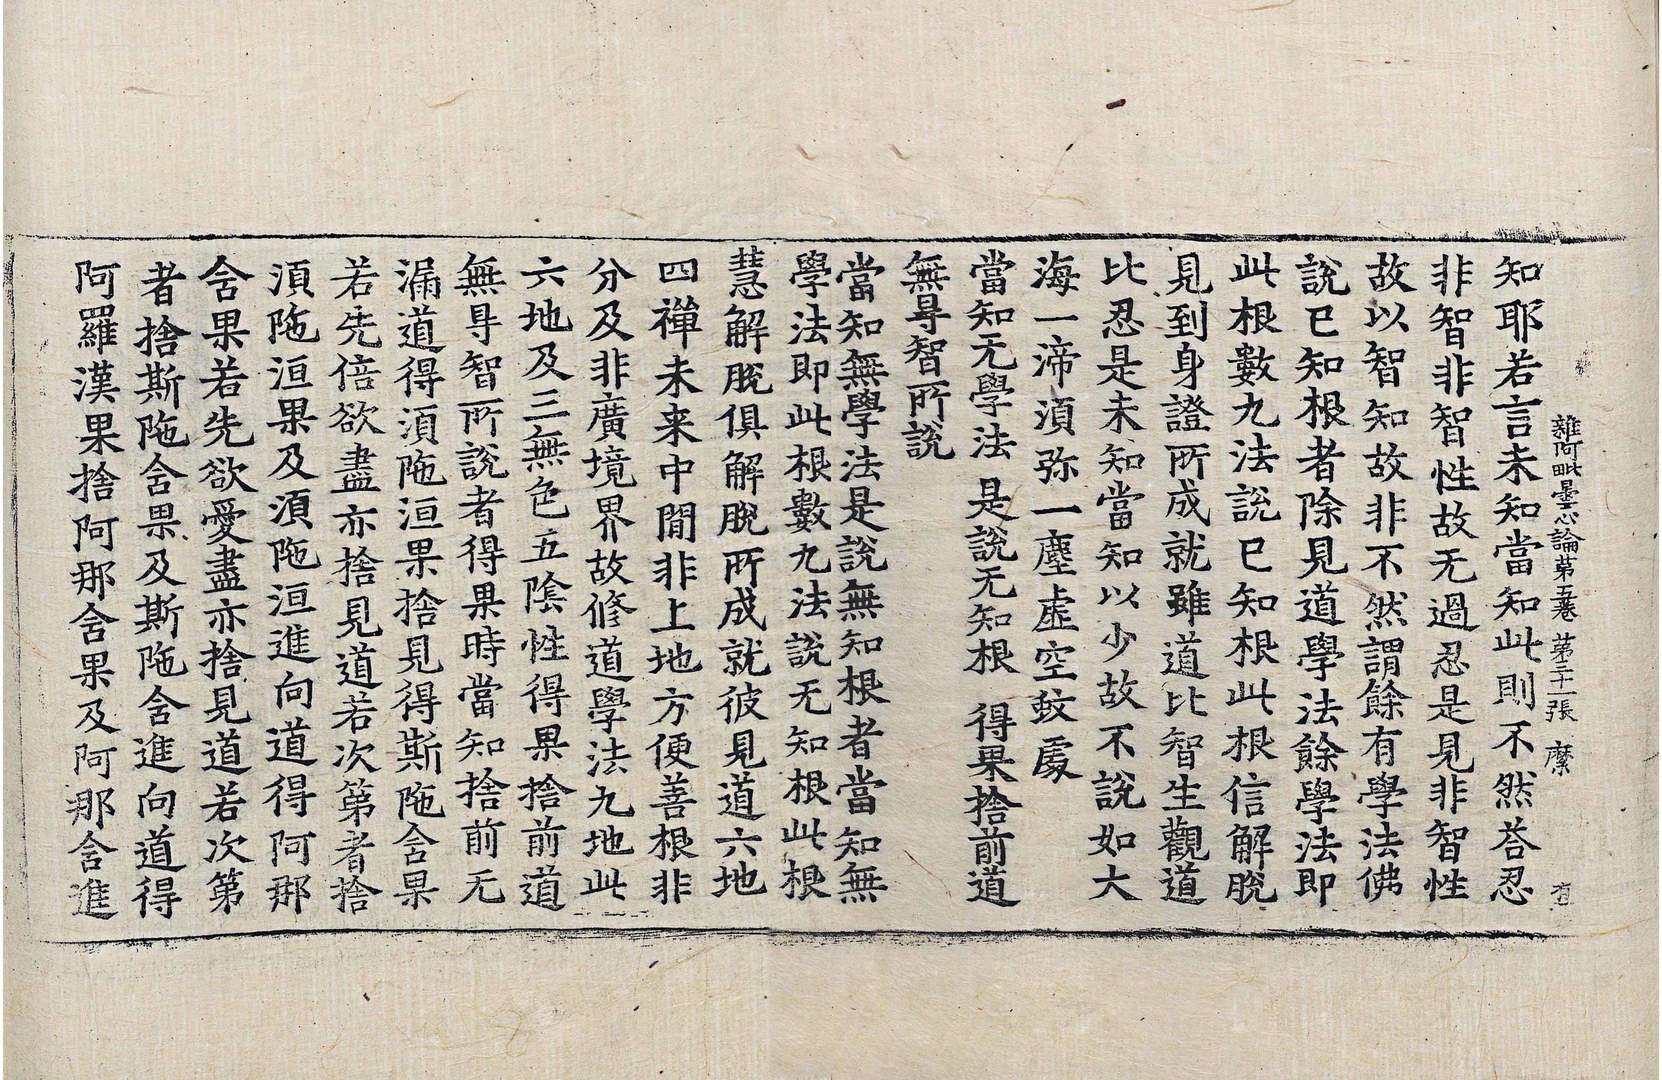 雜阿毗曇心論苐五卷　第三十一張　縻
知耶若言未知當知此則不然荅忍
非智非智性故无過忍是見非智性
故以智知故非不然謂餘有學法佛
說已知根者除見道學法餘學法即
此根數九法說已知根此根信解脫
見到身證所成就雖道比智生觀道
比忍是未知當知以少故不說如大
海一渧湏弥一塵虛空蚊處
當知无學法　是說无知根　得果捨前道
無㝵智所說
當知無學法是說無知根者當知無
學法即此根數九法說无知根此根
慧解脫俱解脫所成就彼見道六地
四禪未来中閒非上地方便善根非
分及非廣境界故修道學法九地此
六地及三無色五陰性得果捨前道
無㝵智所說者得果時當知捨前无
漏道得湏陁洹果捨見得斯陁含果
若先倍欲盡亦捨見道若次第者捨
湏陁洹果及湏陁洹進向道得阿那
含果若先欲愛盡亦捨見道若次第
者捨斯陁含果及斯陁含進向道得
阿羅漢果捨阿那含果及阿那含進